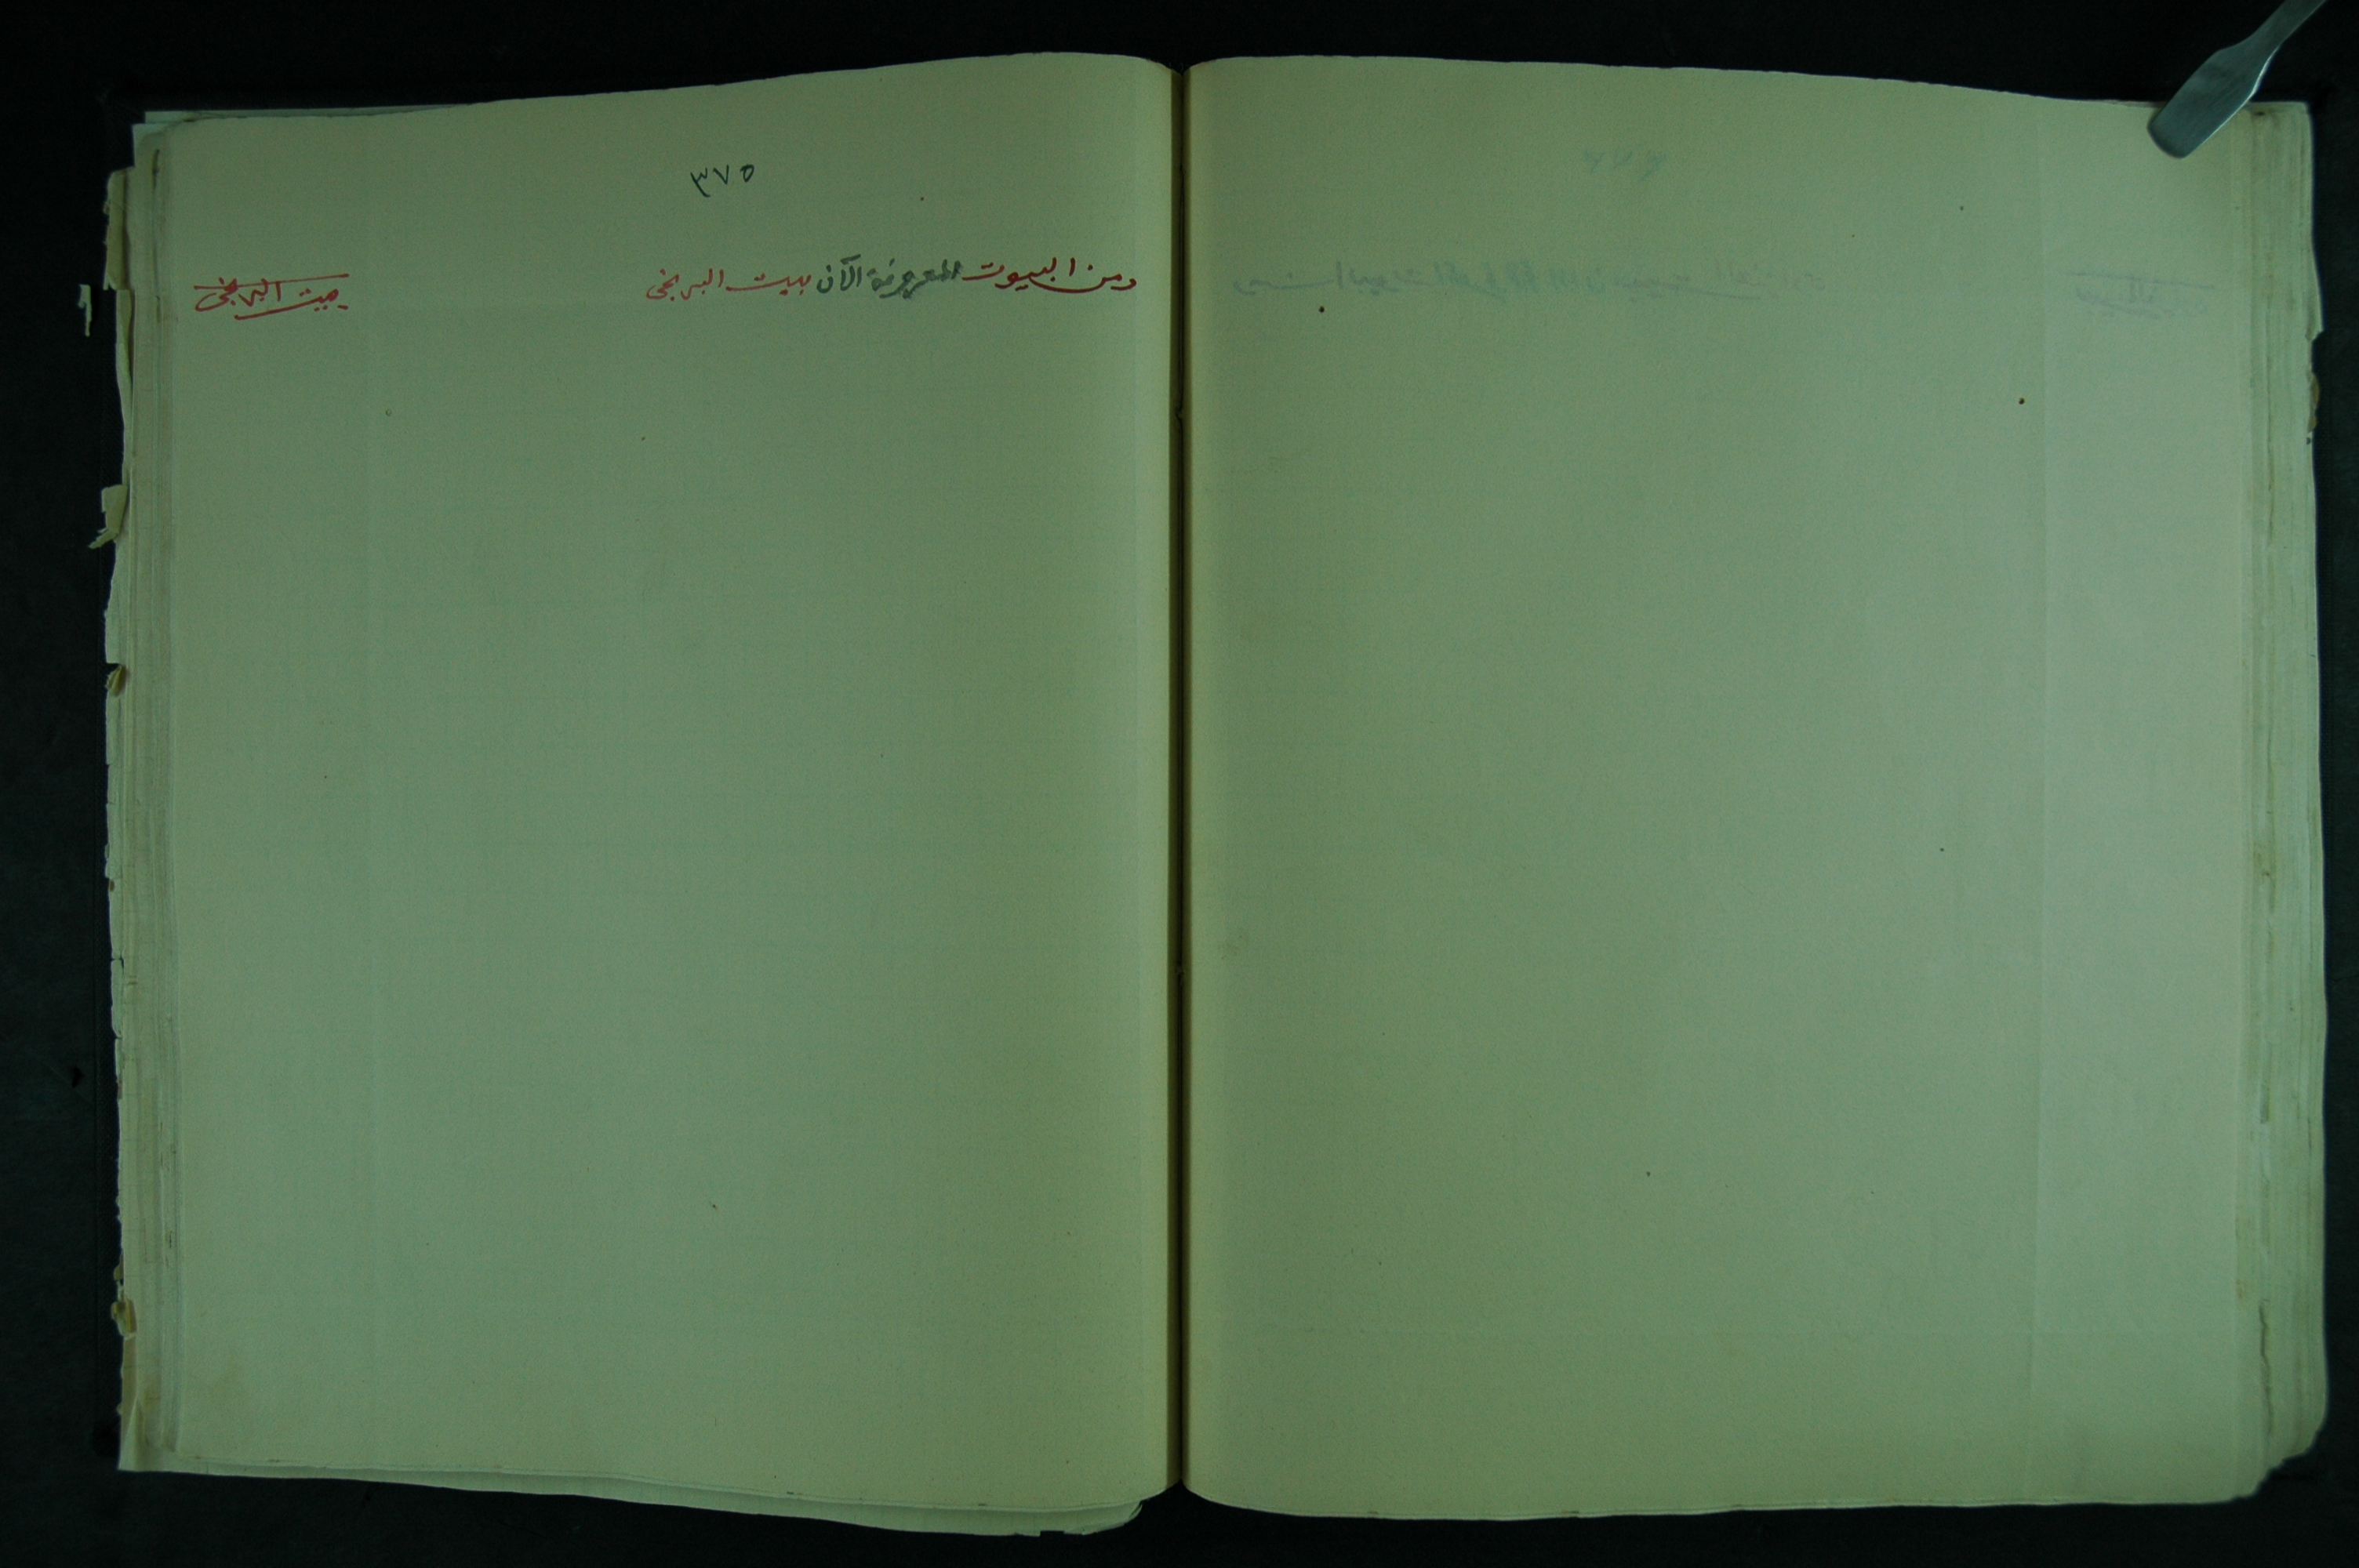 ٣٧٥
ومن البيوت المعروفة الآن ببيت البريخي
بيت البريخي